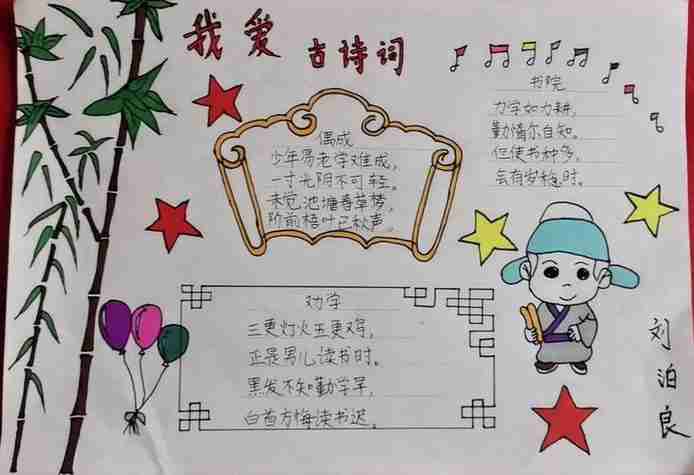 我爱
古诗词
偶成
少年易老学难成,
一寸光阴不可轻。
未觉池塘春草梦,
阶前梧叶已秋声。
书院
力学如力耕,
勤惰尔自知。
但使书种多,
会有岁稔时。
劝学
三更灯火五更鸡,
正是男儿读书时。
黑发不知勤学早,
白首方悔读书迟。
刘泊良